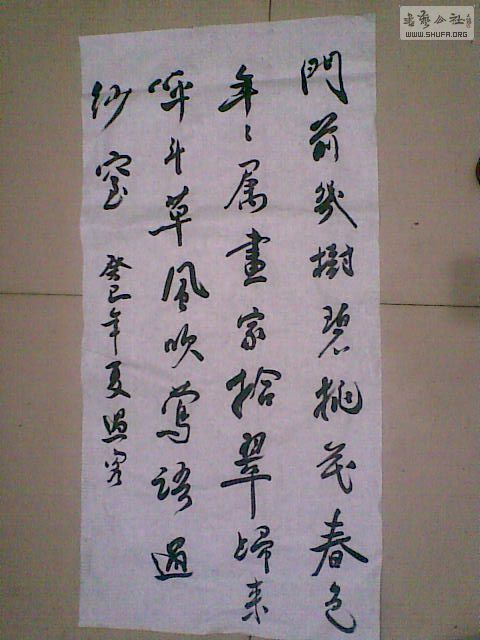 門前幾樹碧桃花春色
年〻属畫家拾翠歸来
呼斗草風吹鶯語過
紗窓
癸巳年夏過客
書藝公社
WWW.SHUFA.ORG